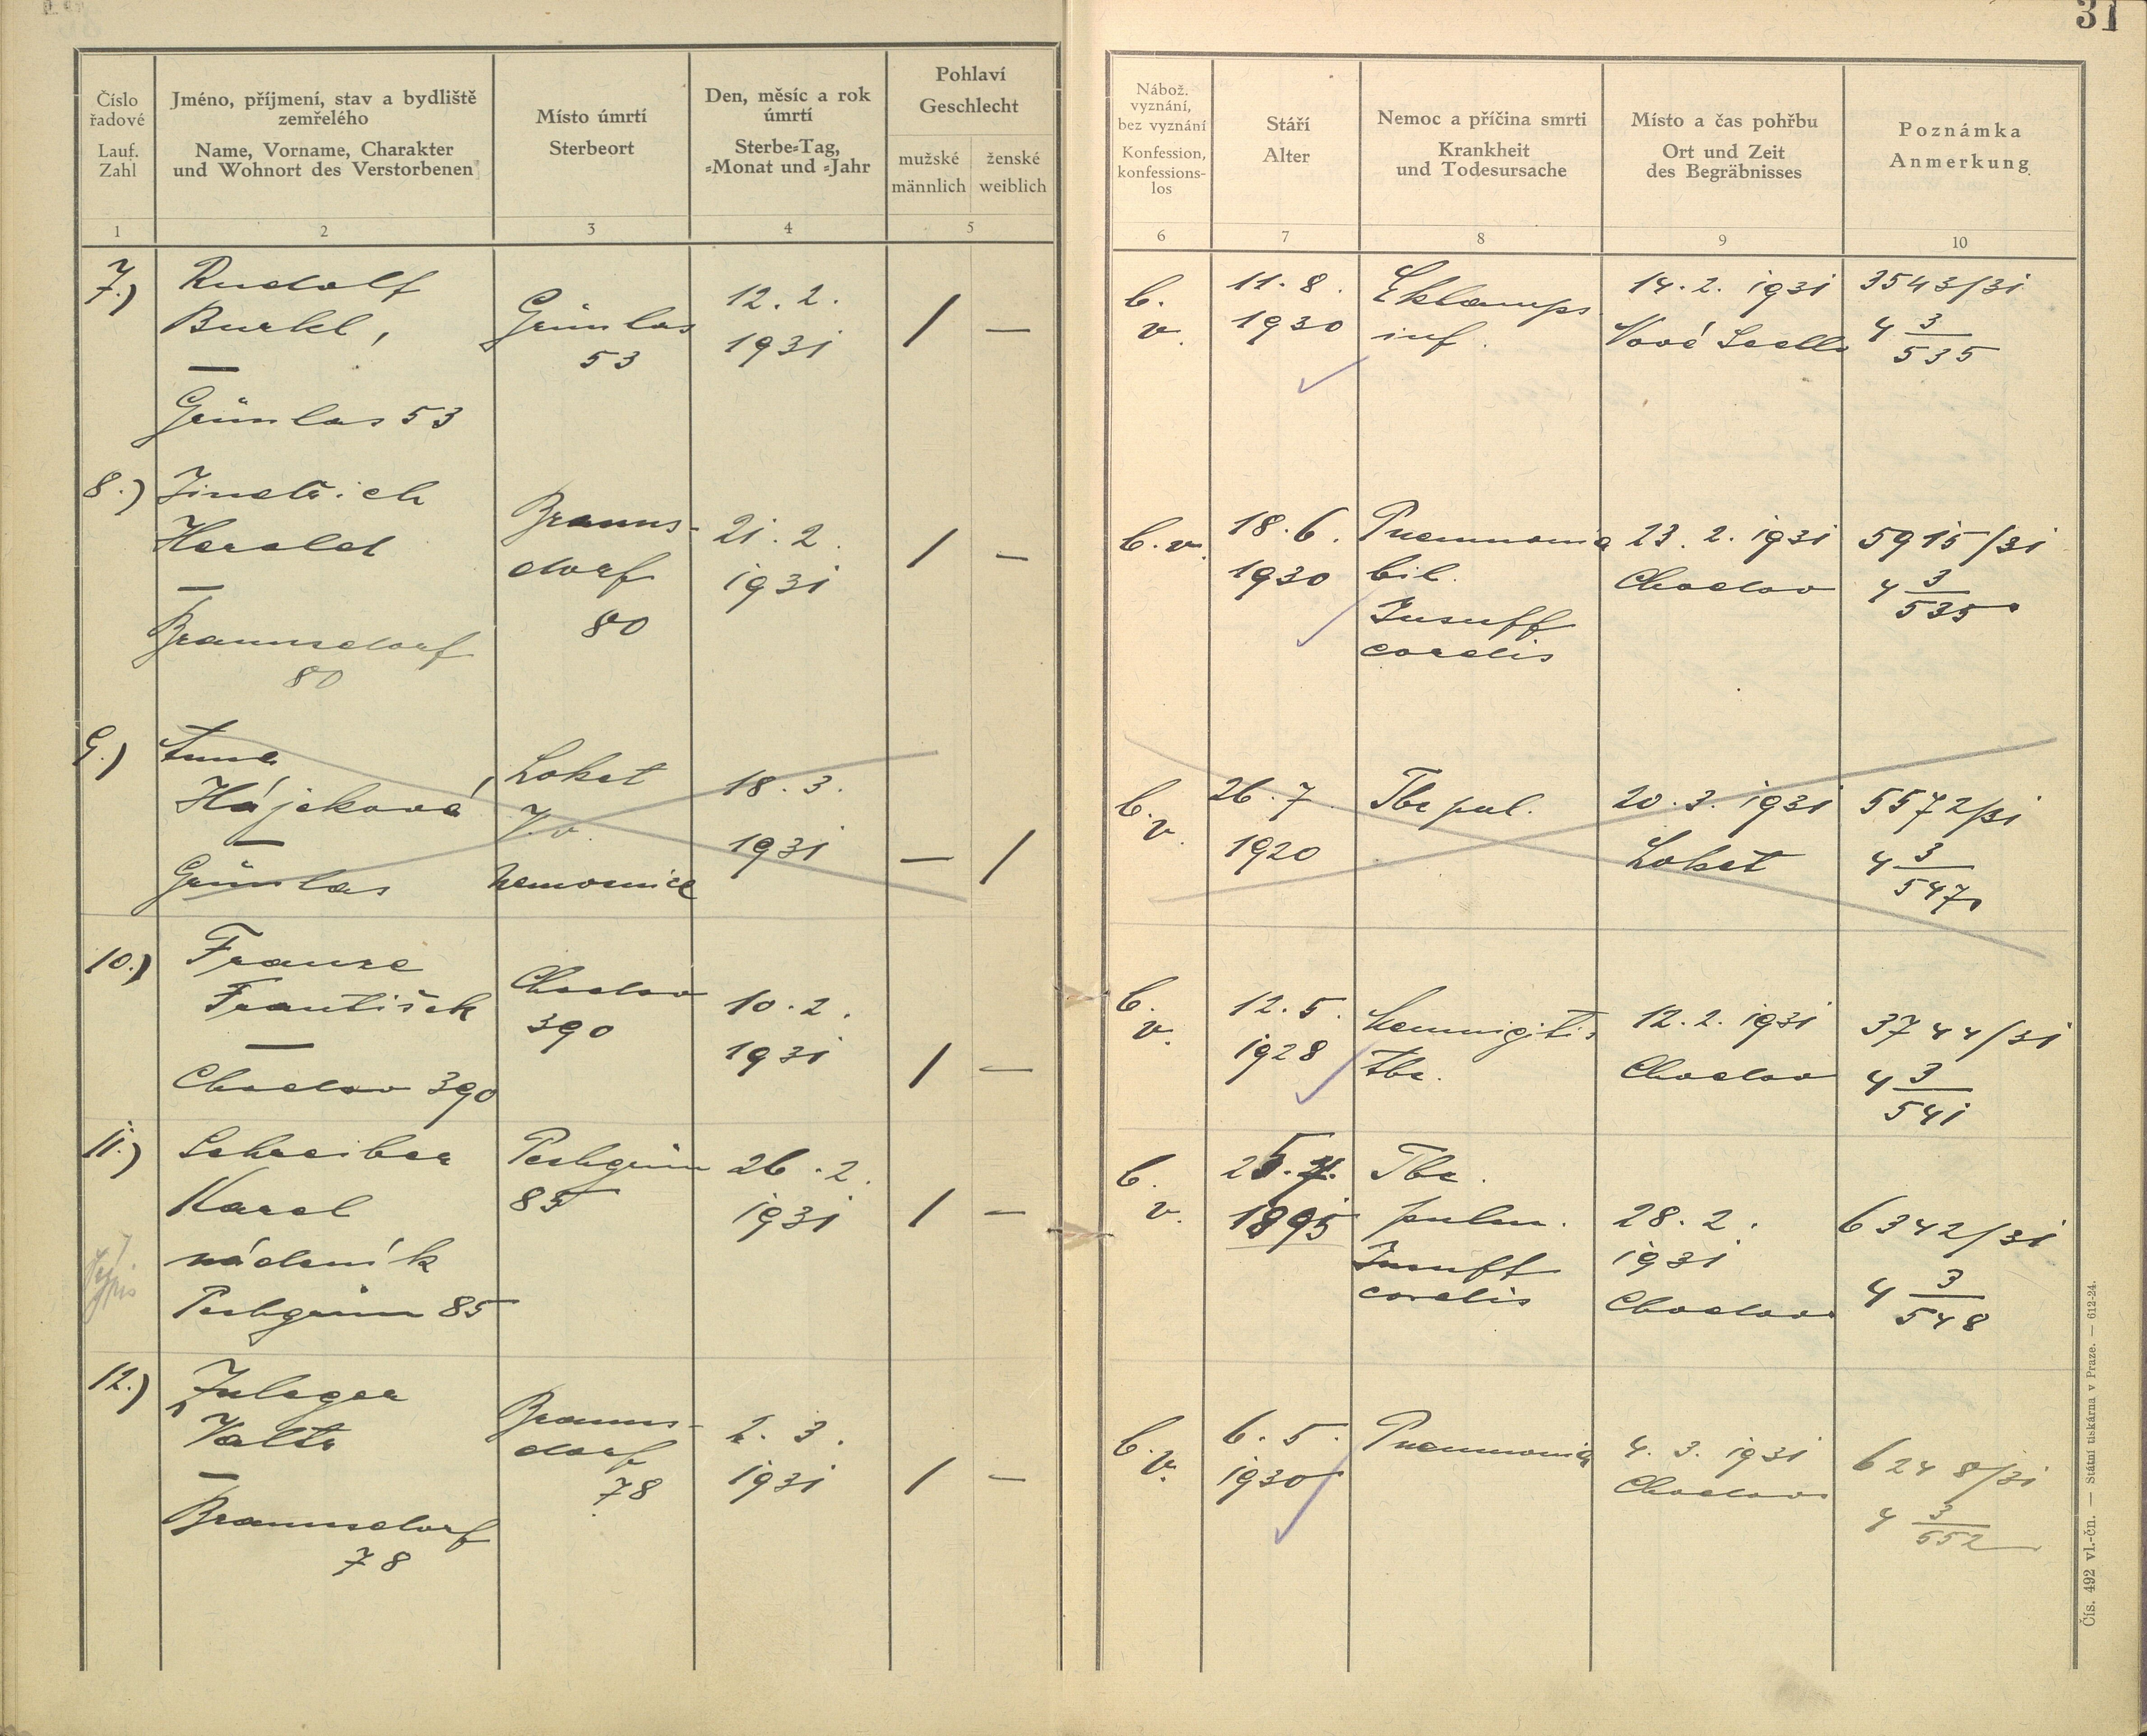 31
Číslo
řadové
Lauf.
Zahl
Jméno, příjmení, stav a bydliště
zemřelého
Name, Vorname, Charakter
und Wohnort des Verstorbenen
Místo úmrtí
Sterbeort
Den, měsíc a rok
úmrtí
Sterbe=Tag,
=Monat und =Jahr
Pohlaví
Geschlecht
mužské
männlich
ženské
weiblich
Nábož.
vyznání,
bez vyznání
Konfession,
konfessions-
los
Stáří
Alter
Nemoc a příčina smrti
Krankheit
und Todesursache
Místo a čas pohřbu
Ort und Zeit
des Begräbnisses
Poznámka
Anmerkung
1 2 3 4 5 6 7 8 9 10
7.)
Rudolf
Burkl,
—
Grünlas 53
Grünlas
53
12. 2.
1931
/ —
b.
v.
11. 8.
1930
Eklamps
inf.
14. 2. 1931
Nové Sedlo
3543/31
4 3/535
8.)
Jindřich
Herold
—
Braunsdorf
80
Brauns-
dorf
80
21. 2.
1931
/ —
b. v.
18. 6.
1930
Pneumonia
bil.
Insuff
cordis
23. 2. 1931
Chodov
5915/31
4 3/535
9.)
Anna
Hájeková
—
Grünlas
Loket
V. v.
nemocnice
18. 3.
1931
— /
b.
v.
26. 7.
1920
Tbc pul.
20. 3. 1931
Loket
5572/31
4 3/547
10.)
Franze
František
—
Chodov 390
Chodov
390
10. 2.
1931
/ —
b.
v.
12. 5.
1928
tbc.
12. 2. 1931
Chodov
3744/31
4 3/541
11.)
Schreiber
Karel
nádeník
Pechgrün 85
Pechgrün
85
26. 2.
1931
/ —
b.
v.
1895
Tbc.
pulm.
Insuff
cordis
28. 2.
1931
Chodov
6342/31
4 3/548
12.)
Zuleger
Valtr
—
Braunsdorf
78
Brauns-
dorf
78
2. 3.
1931
/ —
b.
v.
6. 5.
1930
Pneumonia
4. 3. 1931
Chodov
6248/31
4 3/552
Čís. 492 vl.-čn. — Státní tiskárna v Praze. — 612-24.